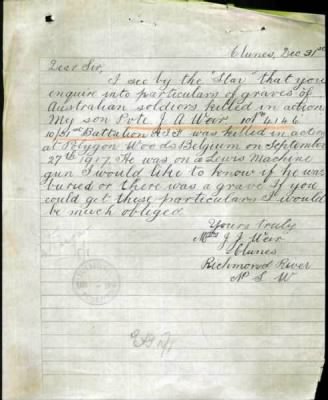 Clunes, Dec 31st
Dear Sir,
I see by the "Star" that you
enquire into particulars of graves of
Australian soldiers killed in action
My son Pvte J A Weir No 4146
10/31st Battalion A.I.F was killed in action
at Polygon Woods Belgium on September
27th 1917. He was on a Lewis Machine
gun I would like to know if he was
buried or there was a grave If you
could get these particulars I would
be much obliged.
Yours truly
Mrs J J Weir
Clunes
Richmond River
N S W